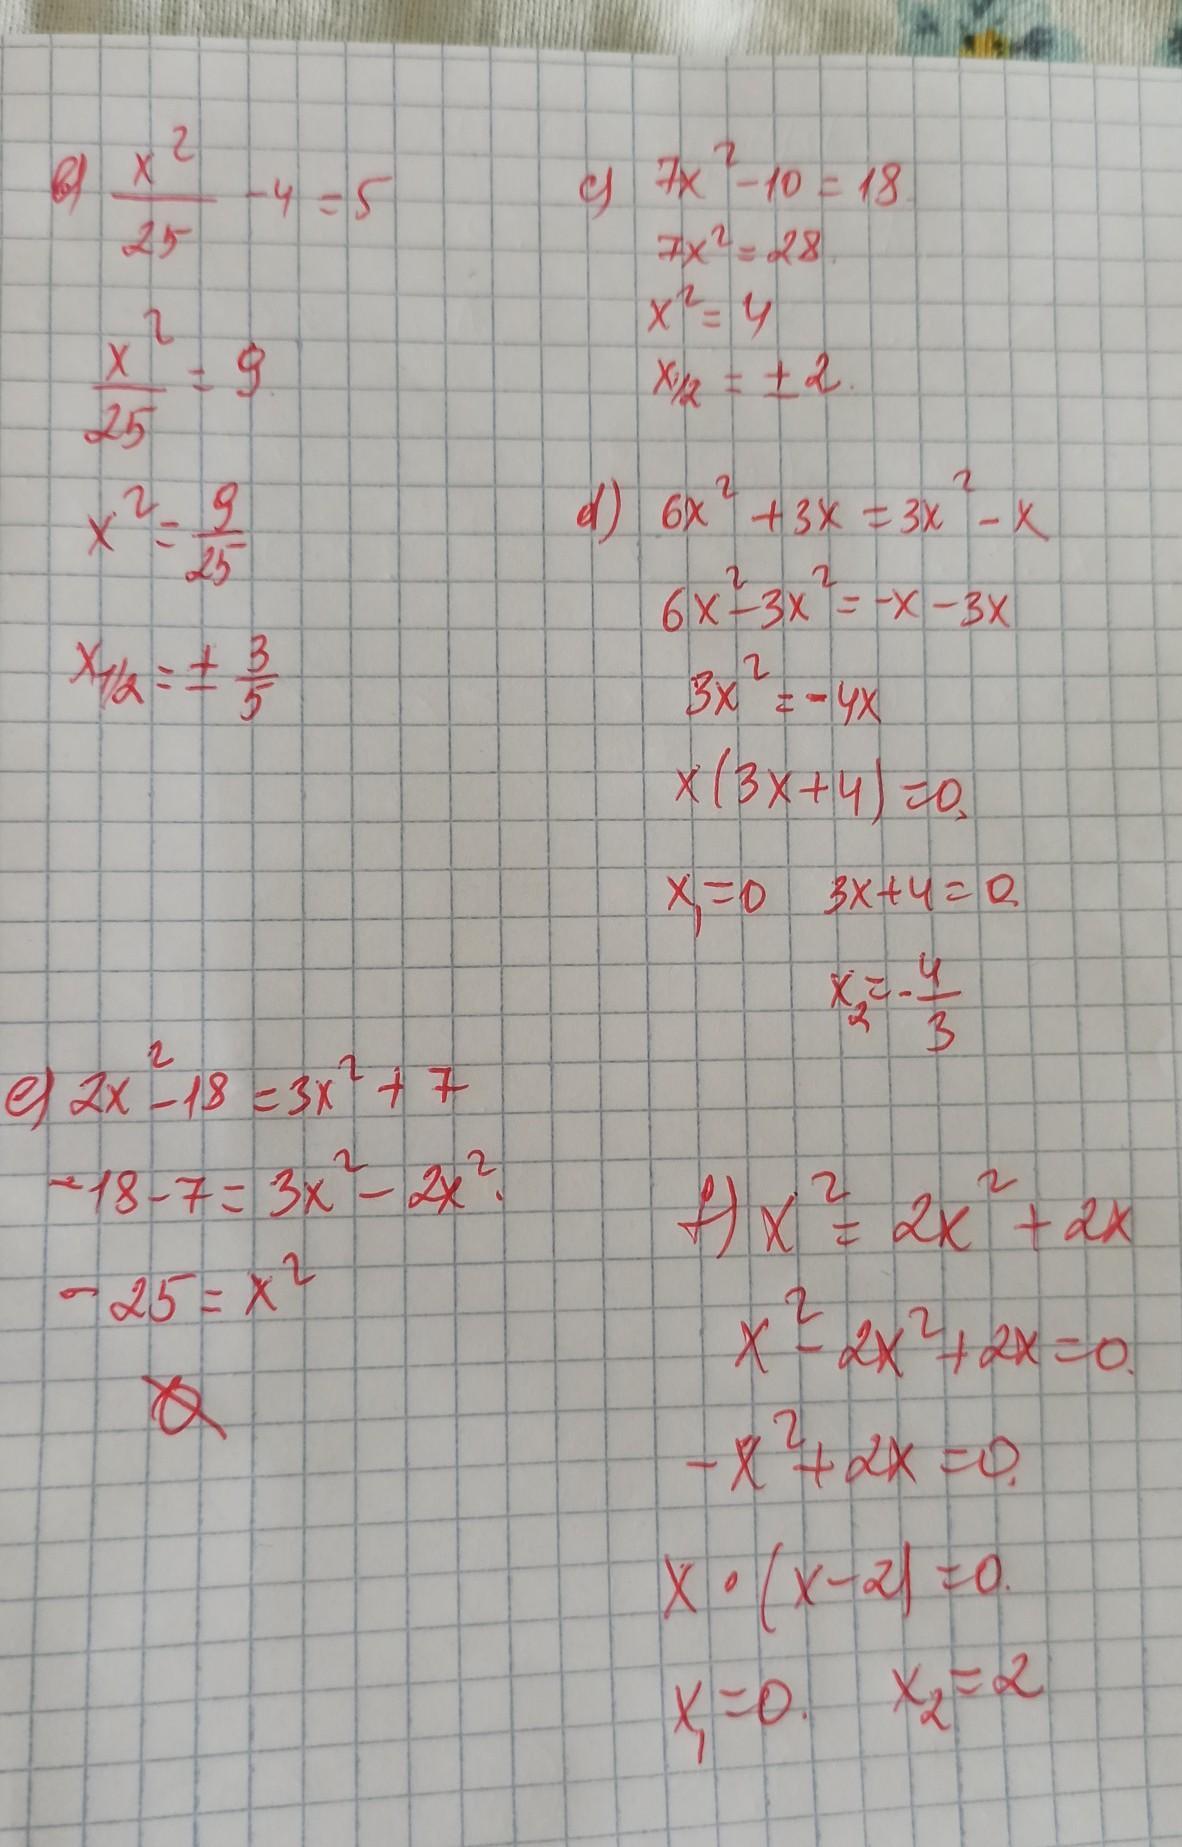 b) x²/25 - 4 = 5
x²/25 = 9
x² = 9/25
x1/2 = ± 3/5
c) 7x² - 10 = 18
7x² = 28
x² = 4
x1/2 = ± 2
d) 6x² + 3x = 3x² - x
6x² - 3x² = -x - 3x
3x² = -4x
x(3x+4) = 0
x₁ = 0 3x+4 = 0
x₂ = -4/3
e) 2x² - 18 = 3x² + 7
-18 - 7 = 3x² - 2x²
-25 = x²
f) x² = 2x² + 2x
x² - 2x² + 2x = 0
-x² + 2x = 0
x · (x-2) = 0
x₁ = 0 x₂ = 2